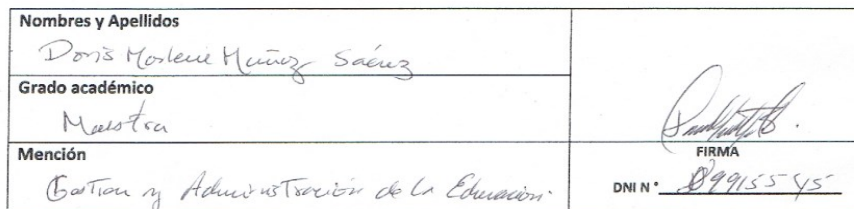 Nombres y Apellidos
Doris Marlene Muñoz Saénz
Grado académico
Maestra
Mención
Gestion y Administración de la Educacion.
FIRMA
DNI N°